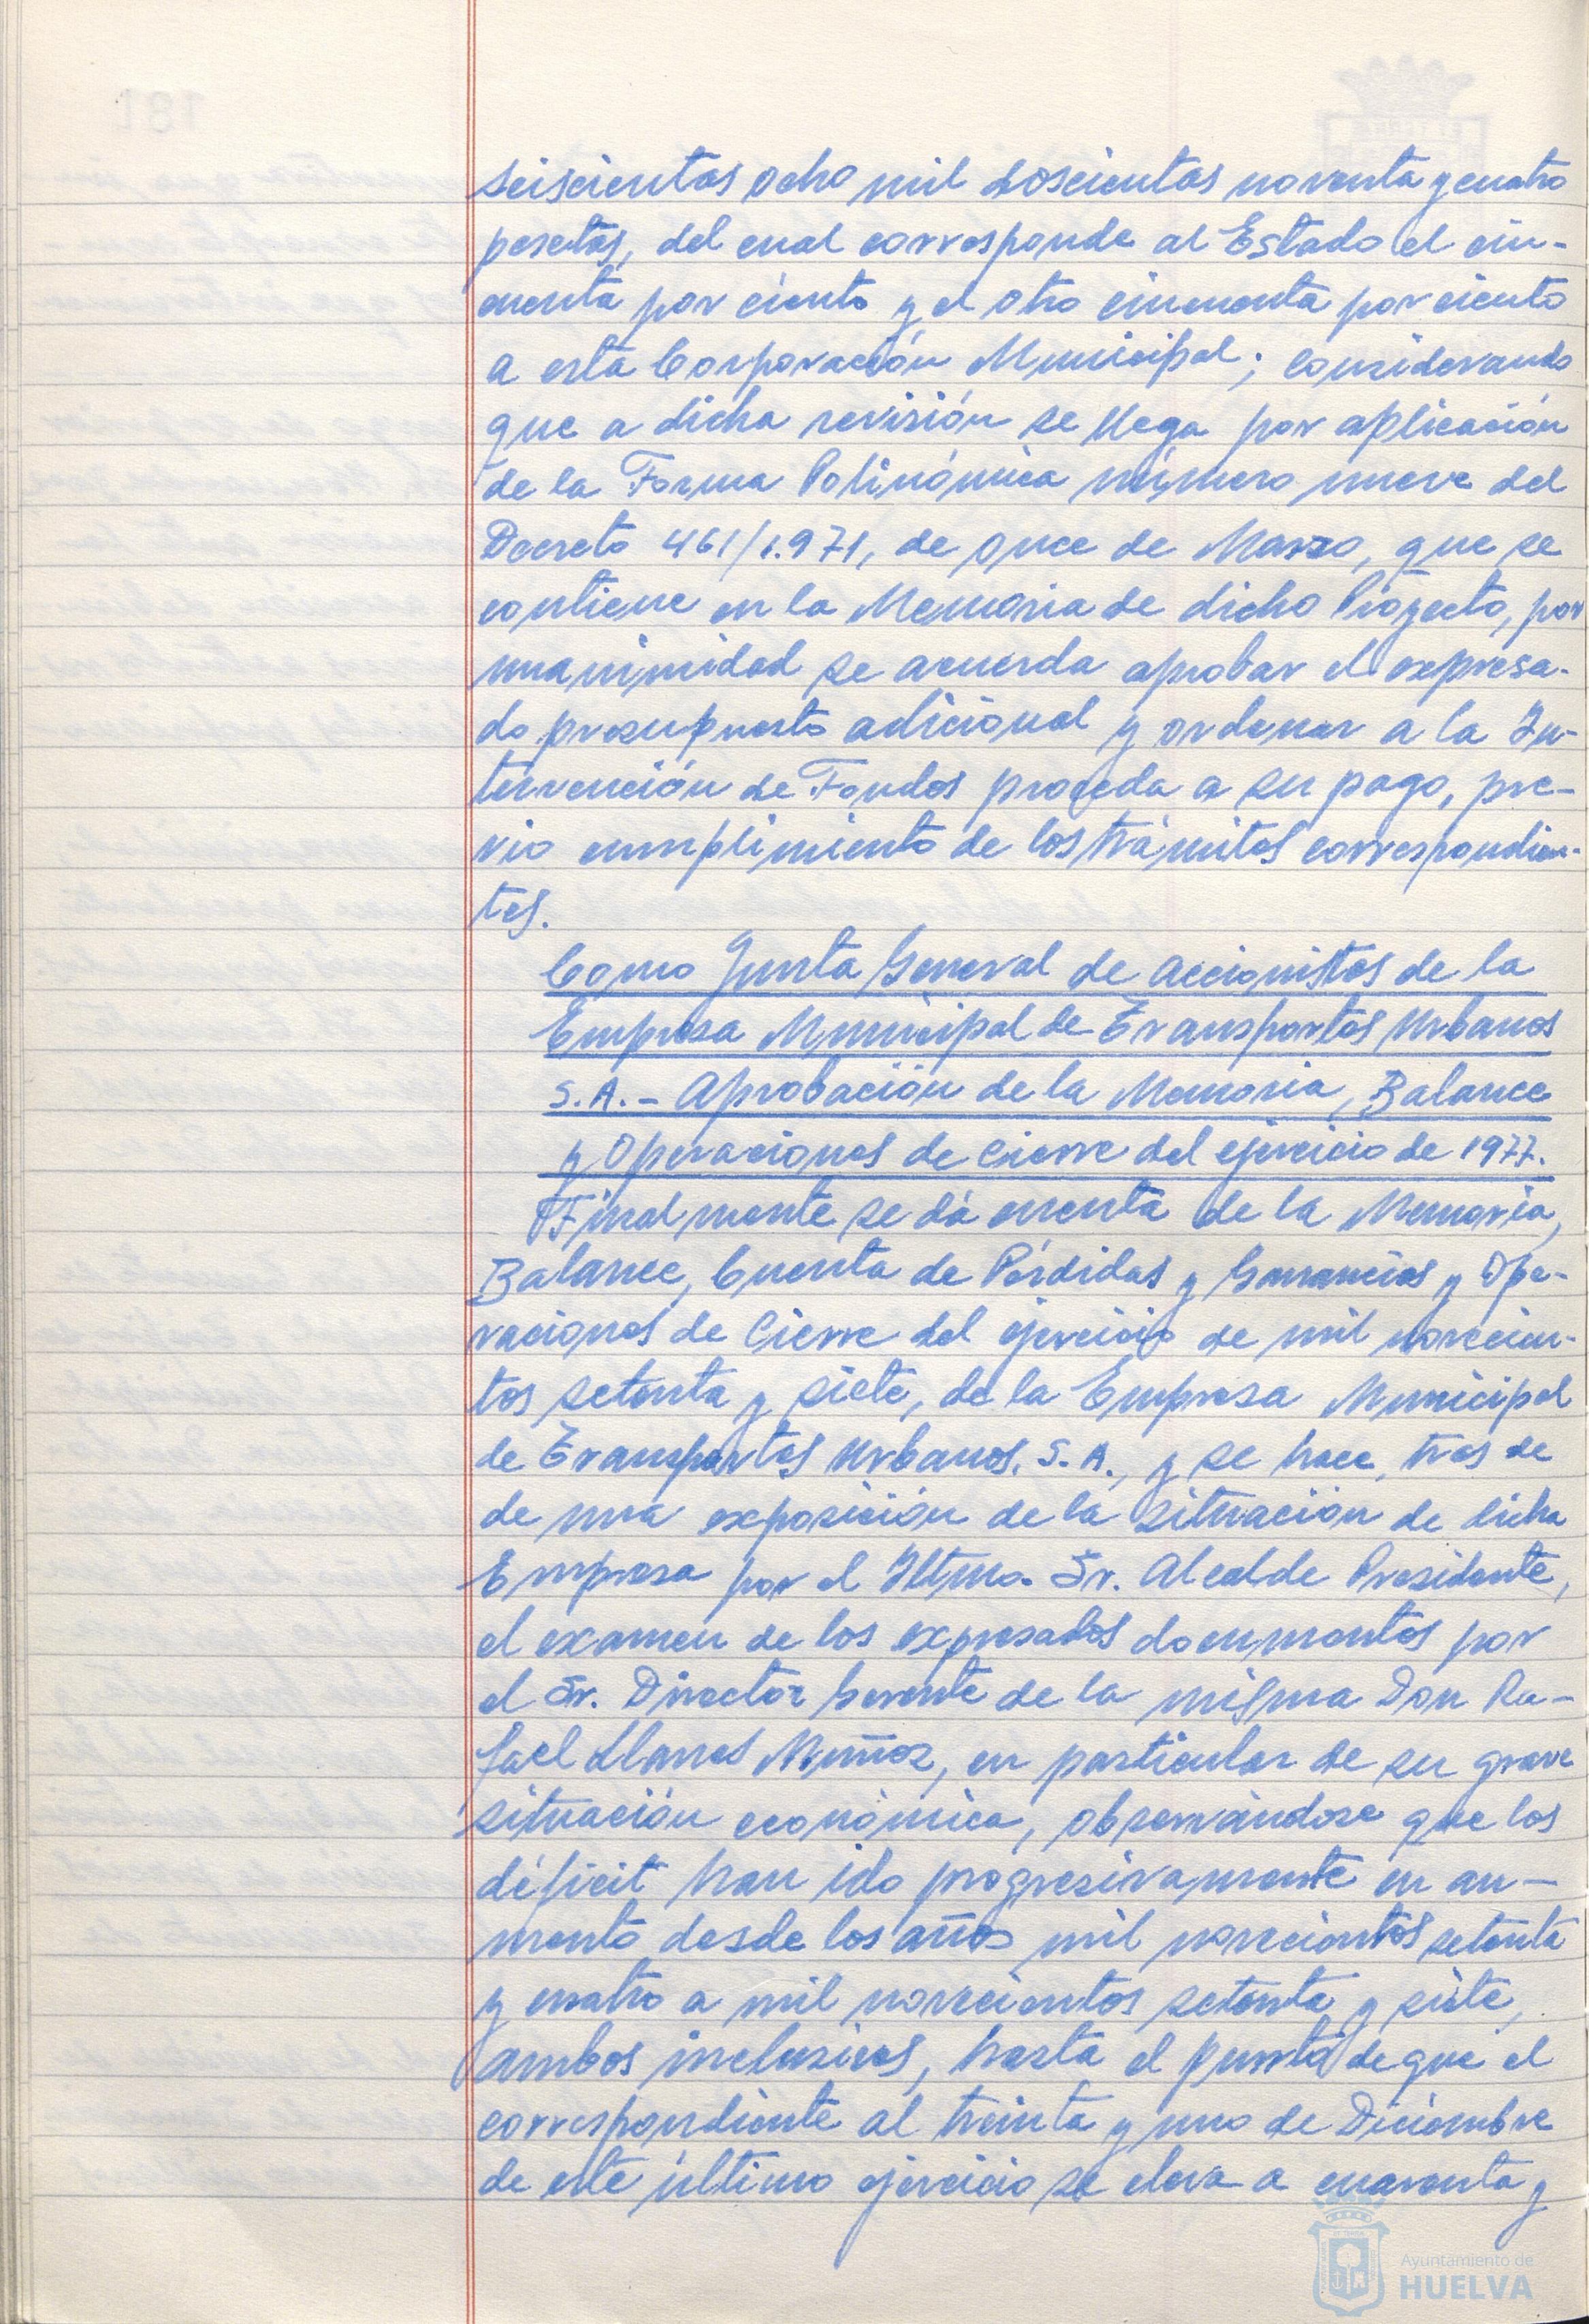 seiscientas ocho mil doscientas noventa y cuatro
pesetas, del cual corresponde al Estado el cin-
cuenta por ciento y el otro cincuenta por ciento
a esta Corporación Municipal; considerando
que a dicha revisión se llega por aplicación
de la Forma Polinómica número nueve del
Decreto 461/1.971, de once de Marzo, que se
contiene en la Memoria de dicho Proyecto, por
unanimidad se acuerda aprobar el expresa-
do presupuesto adicional y ordenar a la In-
tervención de Fondos proceda a su pago, pre-
vio cumplimiento de los trámites correspondien-
tes.
Como Junta General de Accionistas de la
Empresa Municipal de Transportes Urbanos
S.A.- Aprobación de la Memoria, Balance
y Operaciones de Cierre del ejercicio de 1977.
Finalmente se dá cuenta de la Memoria,
Balance, Cuenta de Pérdidas y Ganancias y Ope-
raciones de Cierre del ejercicio de mil novecien-
tos setenta y siete, de la Empresa Municipal
de Transportes Urbanos, S.A., y se hace, tras de
de una exposición de la situación de dicha
Empresa por el Iltmo. Sr. Alcalde Presidente,
el examen de los expresados documentos por
el Sr. Director Gerente de la misma Don Ra-
fael Llanes Muñoz, en particular de su grave
situación económica, observándose que los
déficit han ido progresivamente en au-
mento desde los años mil novecientos setenta
y cuatro a mil novecientos setenta y siete,
ambos inclusives, hasta el punto de que el
correspondiente al treinta y uno de Diciembre
de este último ejercicio se eleva a cuarenta y
Ayuntamiento de
HUELVA